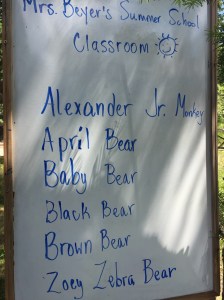 Mrs. Beyer's Summer School
Classroom
Alexander Jr. Monkey
April Bear
Baby Bear
Black Bear
Brown Bear
Zoey Zebra Bear